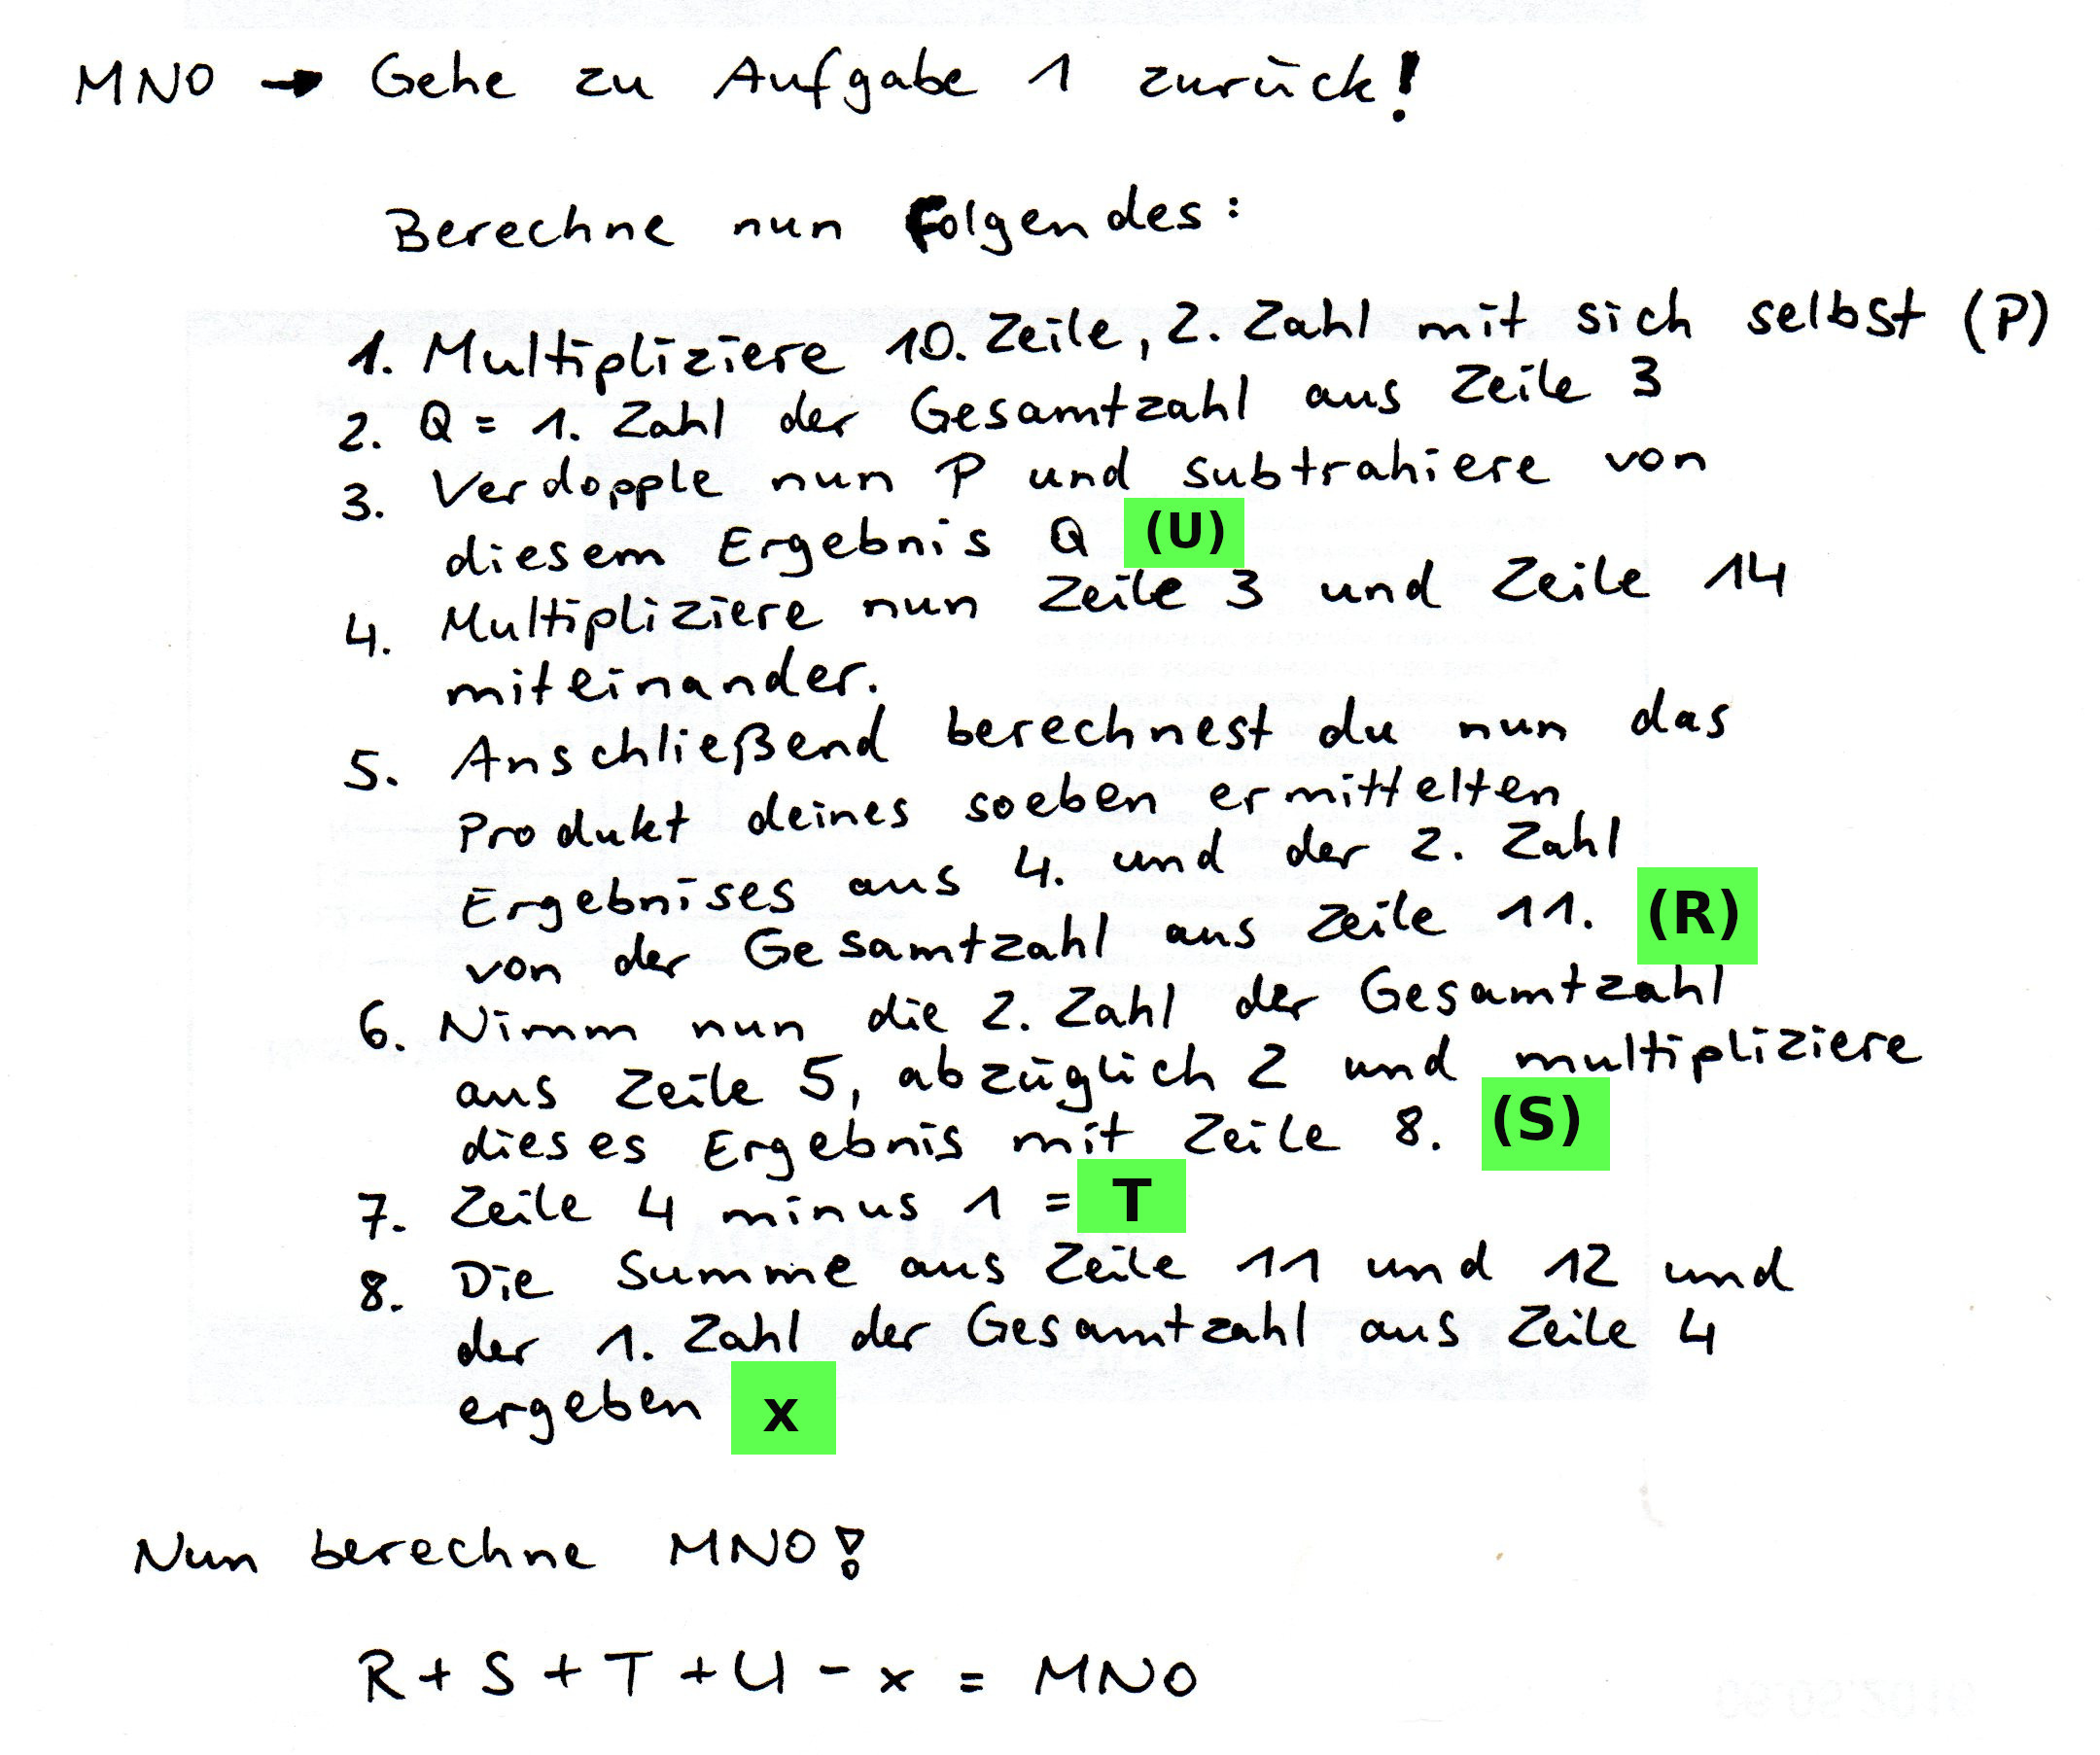 MNO → Gehe zu Aufgabe 1 zurück!
Berechne nun Folgendes:
1. Multipliziere 10. Zeile, 2. Zahl mit sich selbst (P)
2. Q = 1. Zahl der Gesamtzahl aus Zeile 3
3. Verdopple nun P und subtrahiere von
diesem Ergebnis Q (U)
4. Multipliziere nun Zeile 3 und Zeile 14
miteinander.
5. Anschließend berechnest du nun das
Produkt deines soeben ermittelten
Ergebnises aus 4. und der 2. Zahl
von der Gesamtzahl aus Zeile 11. (R)
6. Nimm nun die 2. Zahl der Gesamtzahl
aus Zeile 5, abzüglich 2 und multipliziere
dieses Ergebnis mit Zeile 8. (S)
7. Zeile 4 minus 1 = T
8. Die Summe aus Zeile 11 und 12 und
der 1. Zahl der Gesamtzahl aus Zeile 4
ergeben x
Nun berechne MNO!
R + S + T + U - x = MNO